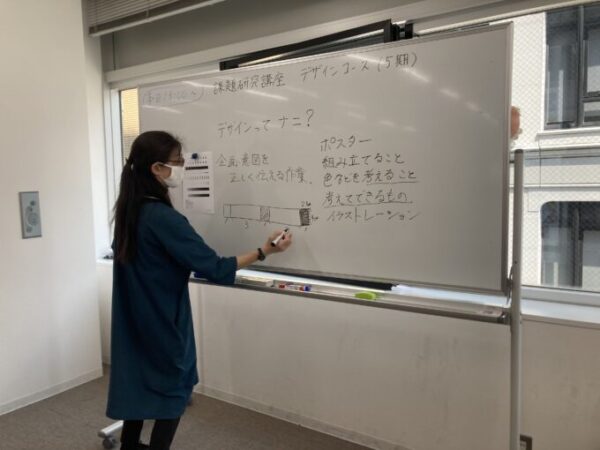 課題研究講座 デザインコース(5期)
デザインって ナニ?
企画意図を
正しく伝える作業。
ポスター
組み立てること
色などを考えること
考えてできるもの
イラストレーション
5